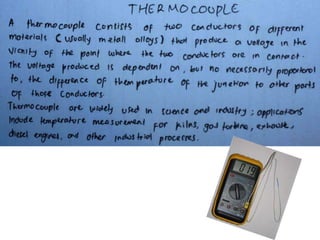 THERMOCOUPLE
A thermocouple consists of two conductors of different
materials (usually metall alloys) that produce a voltage in the
vicinity of the point where the two conductors are in contact.
The voltage produced is dependent on, but no necessarily proportional
to, the difference of themperature of the junction to other parts
of those conductors.
Thermocouple are widely used in science and industry; applications
include temperature measurement for kilns, gas turbine, exhouste,
diesel engines, and other industrial processes.